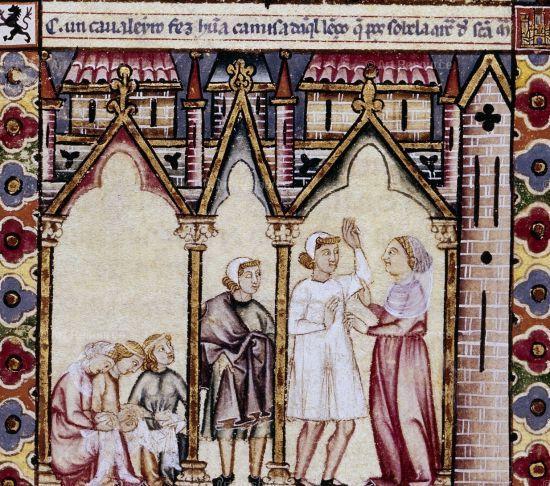 C. un caualeyro fez hũa camisa daq̃l lẽço q̃ pos sobela d' sc̃a